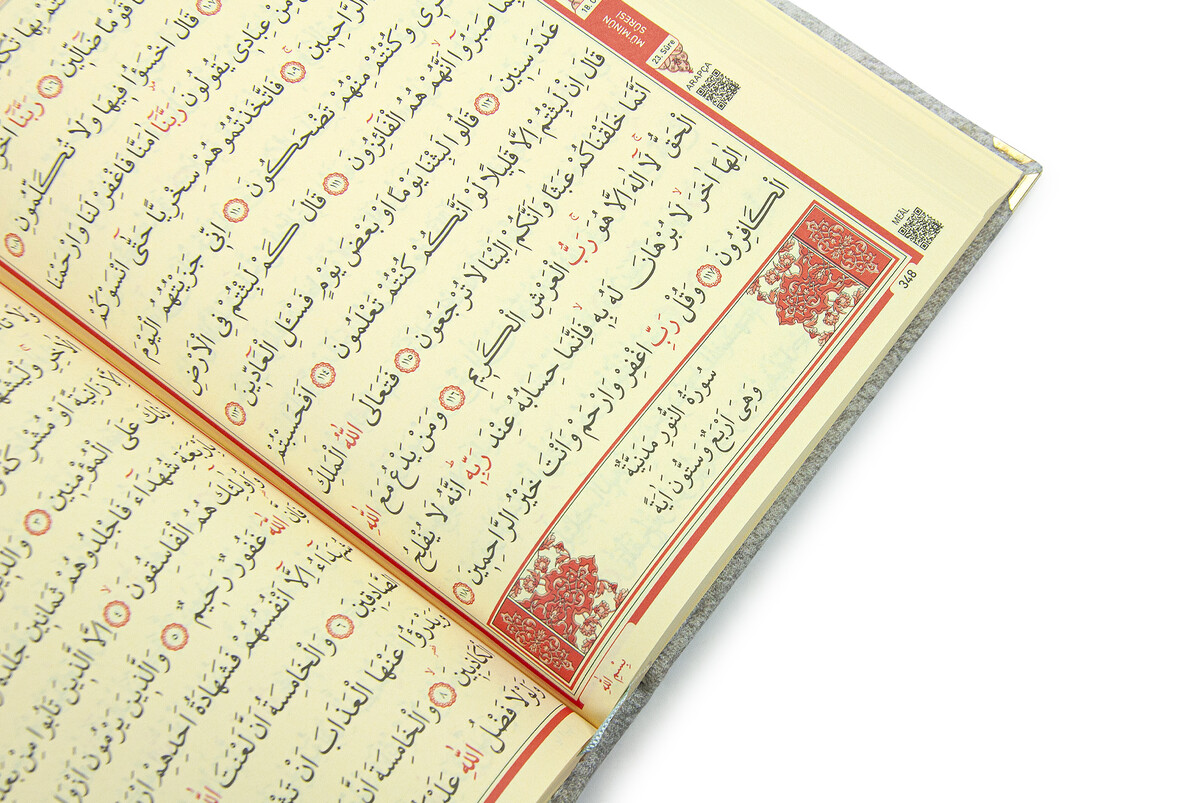 18. C
MÜ'MİNÛN
SÛRESİ
23. Sûre
ARAPÇA
قَوْمًا ضَٓالّ۪ينَ ﴿١٠٦﴾ رَبَّنَٓا
قَالَ اخْسَؤُ۫ا ف۪يهَا وَلَا تُكَلِّمُونِ ﴿١٠٨﴾
مِنْ عِبَاد۪ي يَقُولُونَ رَبَّنَٓا اٰمَنَّا فَاغْفِرْ لَنَا وَارْحَمْنَا
الرَّاحِم۪ينَ ﴿١٠٩﴾ فَاتَّخَذْتُمُوهُمْ سِخْرِيًّا حَتّٰٓى اَنْسَوْكُمْ
وَكُنْتُمْ مِنْهُمْ تَضْحَكُونَ ﴿١١٠﴾ اِنّ۪ي جَزَيْتُهُمُ الْيَوْمَ
صَبَرُٓوا اَنَّهُمْ هُمُ الْفَٓائِزُونَ ﴿١١١﴾ قَالَ كَمْ لَبِثْتُمْ فِي الْاَرْضِ
عَدَدَ سِن۪ينَ ﴿١١٢﴾ قَالُوا لَبِثْنَا يَوْمًا اَوْ بَعْضَ يَوْمٍ فَسْـَٔلِ الْعَٓادّ۪ينَ ﴿١١٣﴾
قَالَ اِنْ لَبِثْتُمْ اِلَّا قَل۪يلًا لَوْ اَنَّكُمْ كُنْتُمْ تَعْلَمُونَ ﴿١١٤﴾ اَفَحَسِبْتُمْ
اَنَّمَا خَلَقْنَاكُمْ عَبَثًا وَاَنَّكُمْ اِلَيْنَا لَا تُرْجَعُونَ ﴿١١٥﴾ فَتَعَالَى اللّٰهُ الْمَلِكُ
الْحَقُّ لَٓا اِلٰهَ اِلَّا هُوَ رَبُّ الْعَرْشِ الْكَر۪يمِ ﴿١١٦﴾ وَمَنْ يَدْعُ مَعَ اللّٰهِ
اِلٰهًا اٰخَرَ لَا بُرْهَانَ لَهُ بِه۪ فَاِنَّمَا حِسَابُهُ عِنْدَ رَبِّه۪ اِنَّهُ لَا يُفْلِحُ
الْكَافِرُونَ ﴿١١٧﴾ وَقُلْ رَبِّ اغْفِرْ وَارْحَمْ وَاَنْتَ خَيْرُ الرَّاحِم۪ينَ ﴿١١٨﴾
سُورَةُ النُّورِ مَدَنِيَّةٌ
وَهِيَ اَرْبَعٌ وَسِتُّونَ اٰيَةً
بِسْمِ اللّٰهِ
MEAL
348
اِلَّا زَانِيَةً اَوْ مُشْرِكَةً
ذٰلِكَ عَلَى الْمُؤْمِن۪ينَ ﴿٣﴾ وَالَّذ۪ينَ
بِاَرْبَعَةِ شُهَدَٓاءَ فَاجْلِدُوهُمْ ثَمَان۪ينَ جَلْدَةً
وَاُو۬لٰٓئِكَ هُمُ الْفَاسِقُونَ ﴿٤﴾ اِلَّا الَّذ۪ينَ تَابُوا مِنْ بَعْدِ
فَاِنَّ اللّٰهَ غَفُورٌ رَح۪يمٌ ﴿٥﴾ وَالَّذ۪ينَ يَرْمُونَ اَزْوَاجَهُمْ
شُهَدَٓاءُ اِلَّٓا اَنْفُسُهُمْ فَشَهَادَةُ اَحَدِهِمْ اَرْبَعُ
الصَّادِق۪ينَ ﴿٦﴾ وَالْخَامِسَةُ اَنَّ لَعْنَتَ اللّٰهِ
وَيَدْرَؤُ۬ا عَنْهَا الْعَذَابَ اَنْ تَشْهَدَ
الْكَاذِب۪ينَ ﴿٨﴾ وَالْخَامِسَةَ اَنَّ
وَلَوْلَا فَضْلُ اللّٰهِ عَلَيْكُمْ